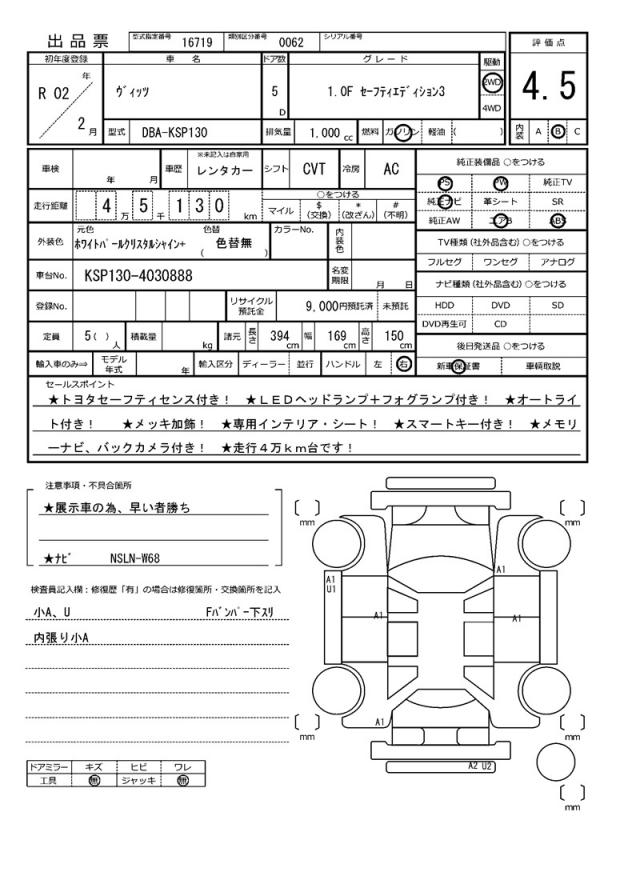 出品票
型式指定番号 16719 類別区分番号 0062 シリアル番号
評価点
4.5
初年度登録 車名 ドア数 グレード 駆動
R 02 年 2 月
ヴィッツ
5 D
1.0F セーフティエディション3
2WD
4WD
型式 DBA-KSP130 排気量 1.000 cc 燃料 ガソリン 軽油 ( )
内装 A B C
車検 年 月 車歴 ※未記入は自家用 レンタカー シフト CVT 冷房 AC
走行距離 4 万 5 千 1 3 0 km
○をつける
マイル $ (交換) * (改ざん) # (不明)
外装色 元色 ホワイトパールクリスタルシャイン+ 色替 ( 色替無 ) カラーNo. 内装色
車台No. KSP130-4030888 名変期限 月 日
登録No. リサイクル預託金 9,000円預託済 未預託
定員 5( ) 人 積載量 kg 諸元 長さ 394 cm 幅 169 cm 高さ 150 cm
輸入車のみ⇒ モデル年式 年 輸入区分 ディーラー 並行 ハンドル 左 右
純正装備品 ○をつける
PS PW 純正TV
純正ナビ 革シート SR
純正AW エアB ABS
TV種類 (社外品含む) ○をつける
フルセグ ワンセグ アナログ
ナビ種類 (社外品含む) ○をつける
HDD DVD SD
DVD再生可 CD
後日発送品 ○をつける
新車保証書 車輌取説
セールスポイント
★トヨタセーフティセンス付き! ★LEDヘッドランプ+フォグランプ付き! ★オートライ
ト付き! ★メッキ加飾! ★専用インテリア・シート! ★スマートキー付き! ★メモリ
ーナビ、バックカメラ付き! ★走行4万km台です!
注意事項・不具合箇所
★展示車の為、早い者勝ち
★ナビ NSLN-W68
検査員記入欄:修復歴「有」の場合は修復箇所・交換箇所を記入
小A、U Fバンパー下スリ
内張り小A
ドアミラー キズ ヒビ ワレ
工具 無 ジャッキ 無
mm
mm
A1
A1
U1
A1
A1
A1
mm
mm
A2 U2
mm